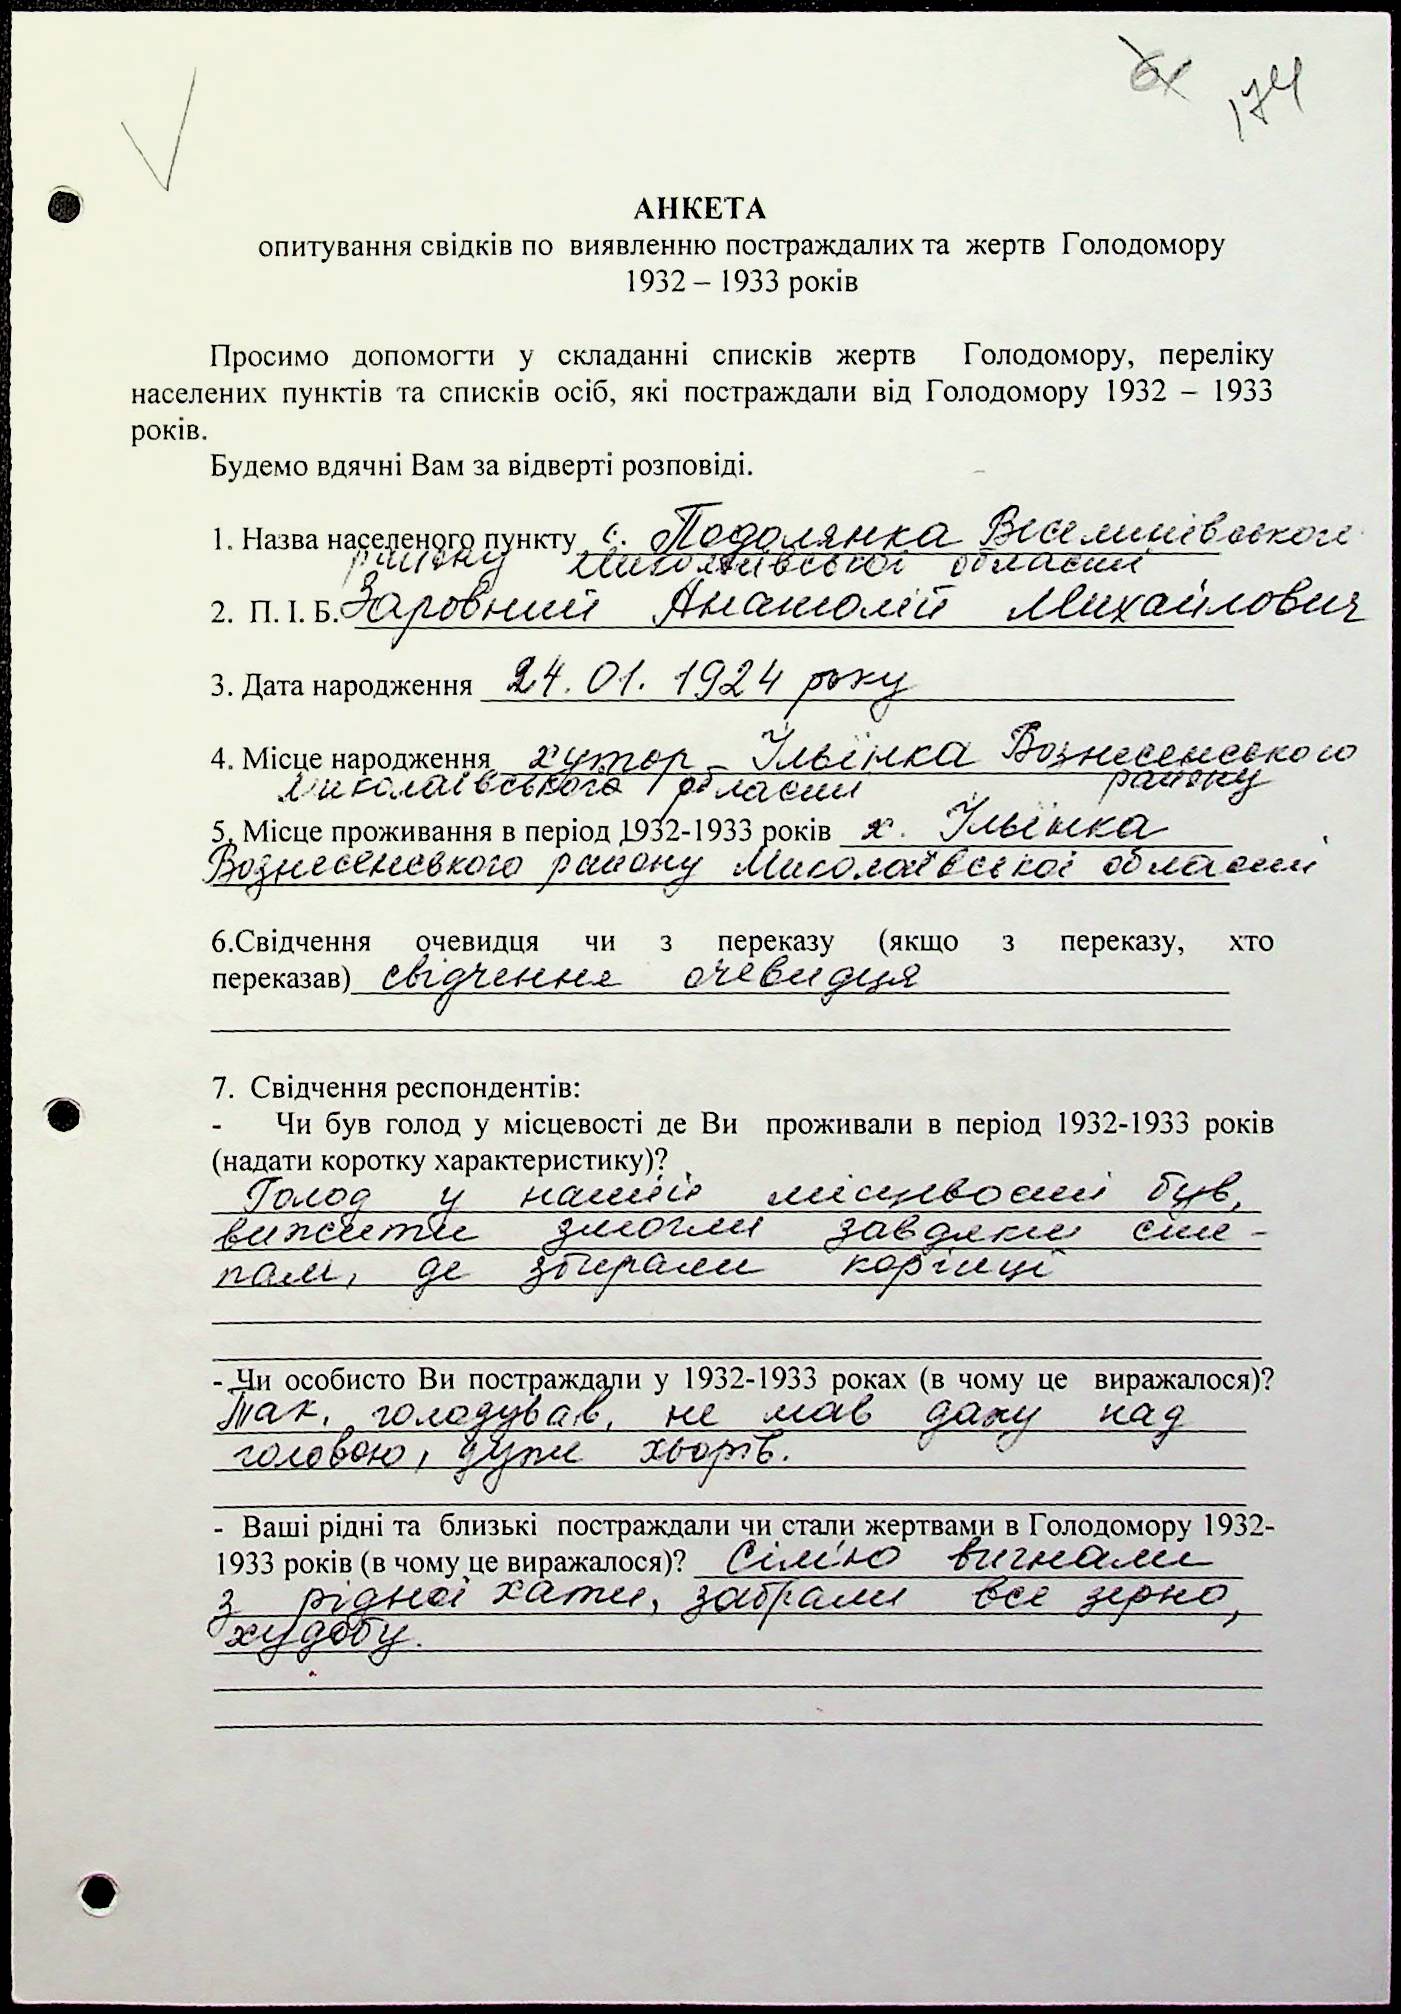 174
АНКЕТА
опитування свідків по виявленню постраждалих та жертв Голодомору
1932 – 1933 років
Просимо допомогти у складанні списків жертв Голодомору, переліку
населених пунктів та списків осіб, які постраждали від Голодомору 1932 – 1933
років.
Будемо вдячні Вам за відверті розповіді.
1. Назва населеного пункту с. Подолянка Веселинівського
району Миколаївської області
2. П. І. Б. Заровний Анатолій Михайлович
3. Дата народження 24.01.1924 року
4. Місце народження хутор Ільїнка Вознесенського
Миколаївського області району
5. Місце проживання в період 1932-1933 років х. Ільїнка
Вознесенського району Миколаївської області
6.Свідчення очевидця чи з переказу (якщо з переказу, хто
переказав) свідчення очевидця
7. Свідчення респондентів:
- Чи був голод у місцевості де Ви проживали в період 1932-1933 років
(надати коротку характеристику)?
Голод у нашій місцевості був,
вижити змогли завдяки сте-
пам, де збирали корінці
- Чи особисто Ви постраждали у 1932-1933 роках (в чому це виражалося)?
Так, голодував, не мав даху над
головою, дуже хворів.
- Ваші рідні та близькі постраждали чи стали жертвами в Голодомору 1932-
1933 років (в чому це виражалося)? Сім'ю вигнали
з рідної хати, забрали все зерно,
худобу.